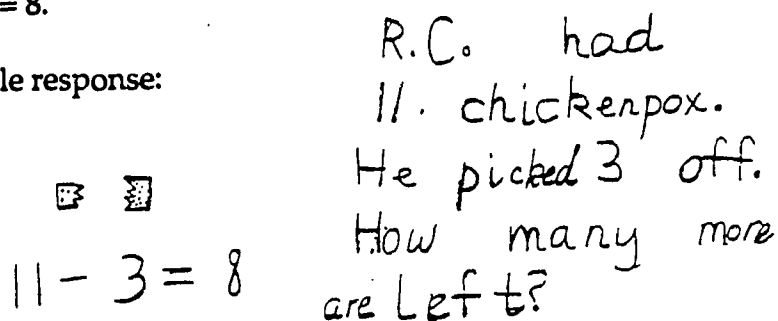 = 8.
le response:
R.C. had
11. chickenpox.
He picked 3 off.
How many more
are Left?
11 - 3 = 8